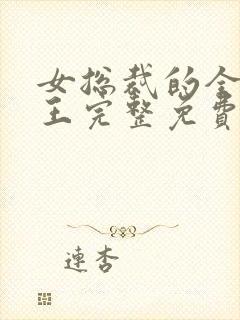 女总裁的全
王完整免費
連杏